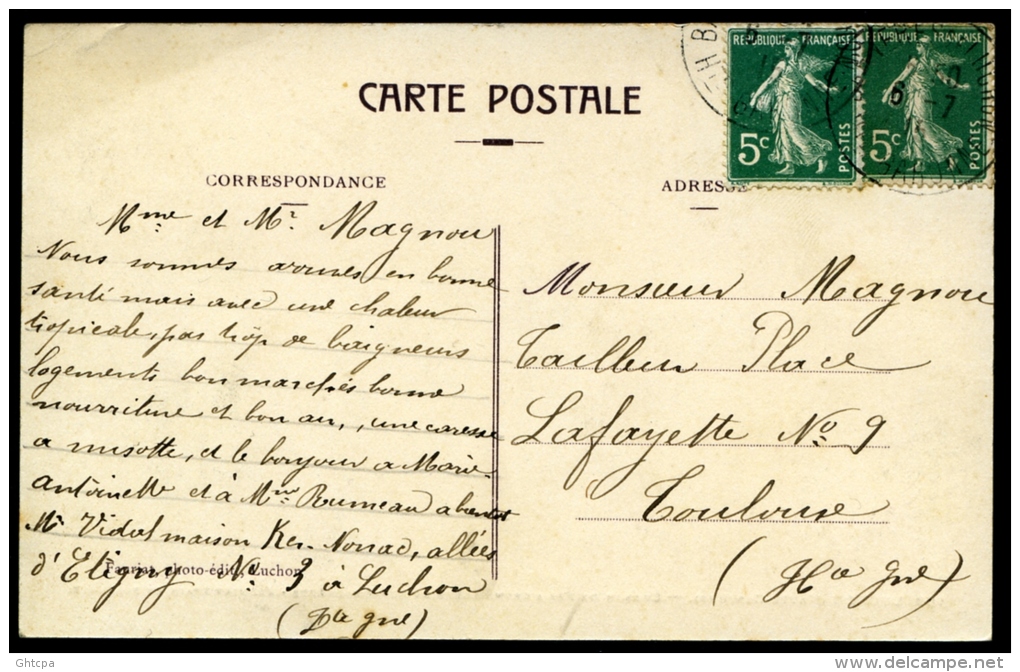 CARTE POSTALE
CORRESPONDANCE
ADRESSE
REPUBLIQUE FRANÇAISE
5c
POSTES
REPUBLIQUE FRANÇAISE
5c
POSTES
Mme et Mr Magnou
Nous sommes arrivés en bonne
santé mais avec une chaleur
tropicale, pas trop de baigneurs
logements bon marchés bonne
nourriture et bon air, une caresse
a misotte, et le bonjour a Marie
antoinette et à Mme Rumeau a bientot
Mr Vidal maison Ker-Nonac, allées
d'Etigny No 3 à Luchon
(Hte gne)
photo-édit, Luchon
Monsieur Magnou
Tailleur Place
Lafayette No 9
Toulouse
(Hte gne)
Ghtcpa
www.delcampe.net